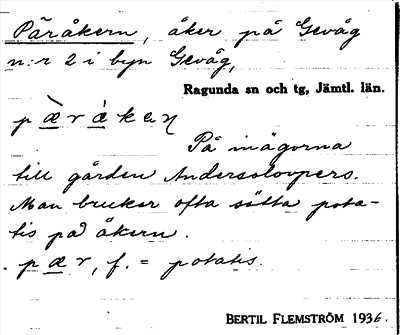 Päråkern, åker på Gevåg
n:r 2 i byn Gevåg,
Ragunda sn och tg, Jämtl. län.
p æ̀ r à k e ŋ
På inägorna
till gården Andersolovpers.
Man bruker ofta sätta pota-
tis på åkern.
p æ r, f. = potatis.
BERTIL FLEMSTRÖM 1936.